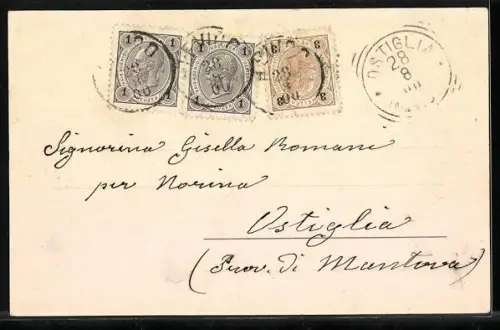 1 1
1 1
8 8
8 8
28
28
28
OSTIGLIA
28
8
Signorina Gisella Romani
per Norina
Ostiglia
(Prov. di Mantova)